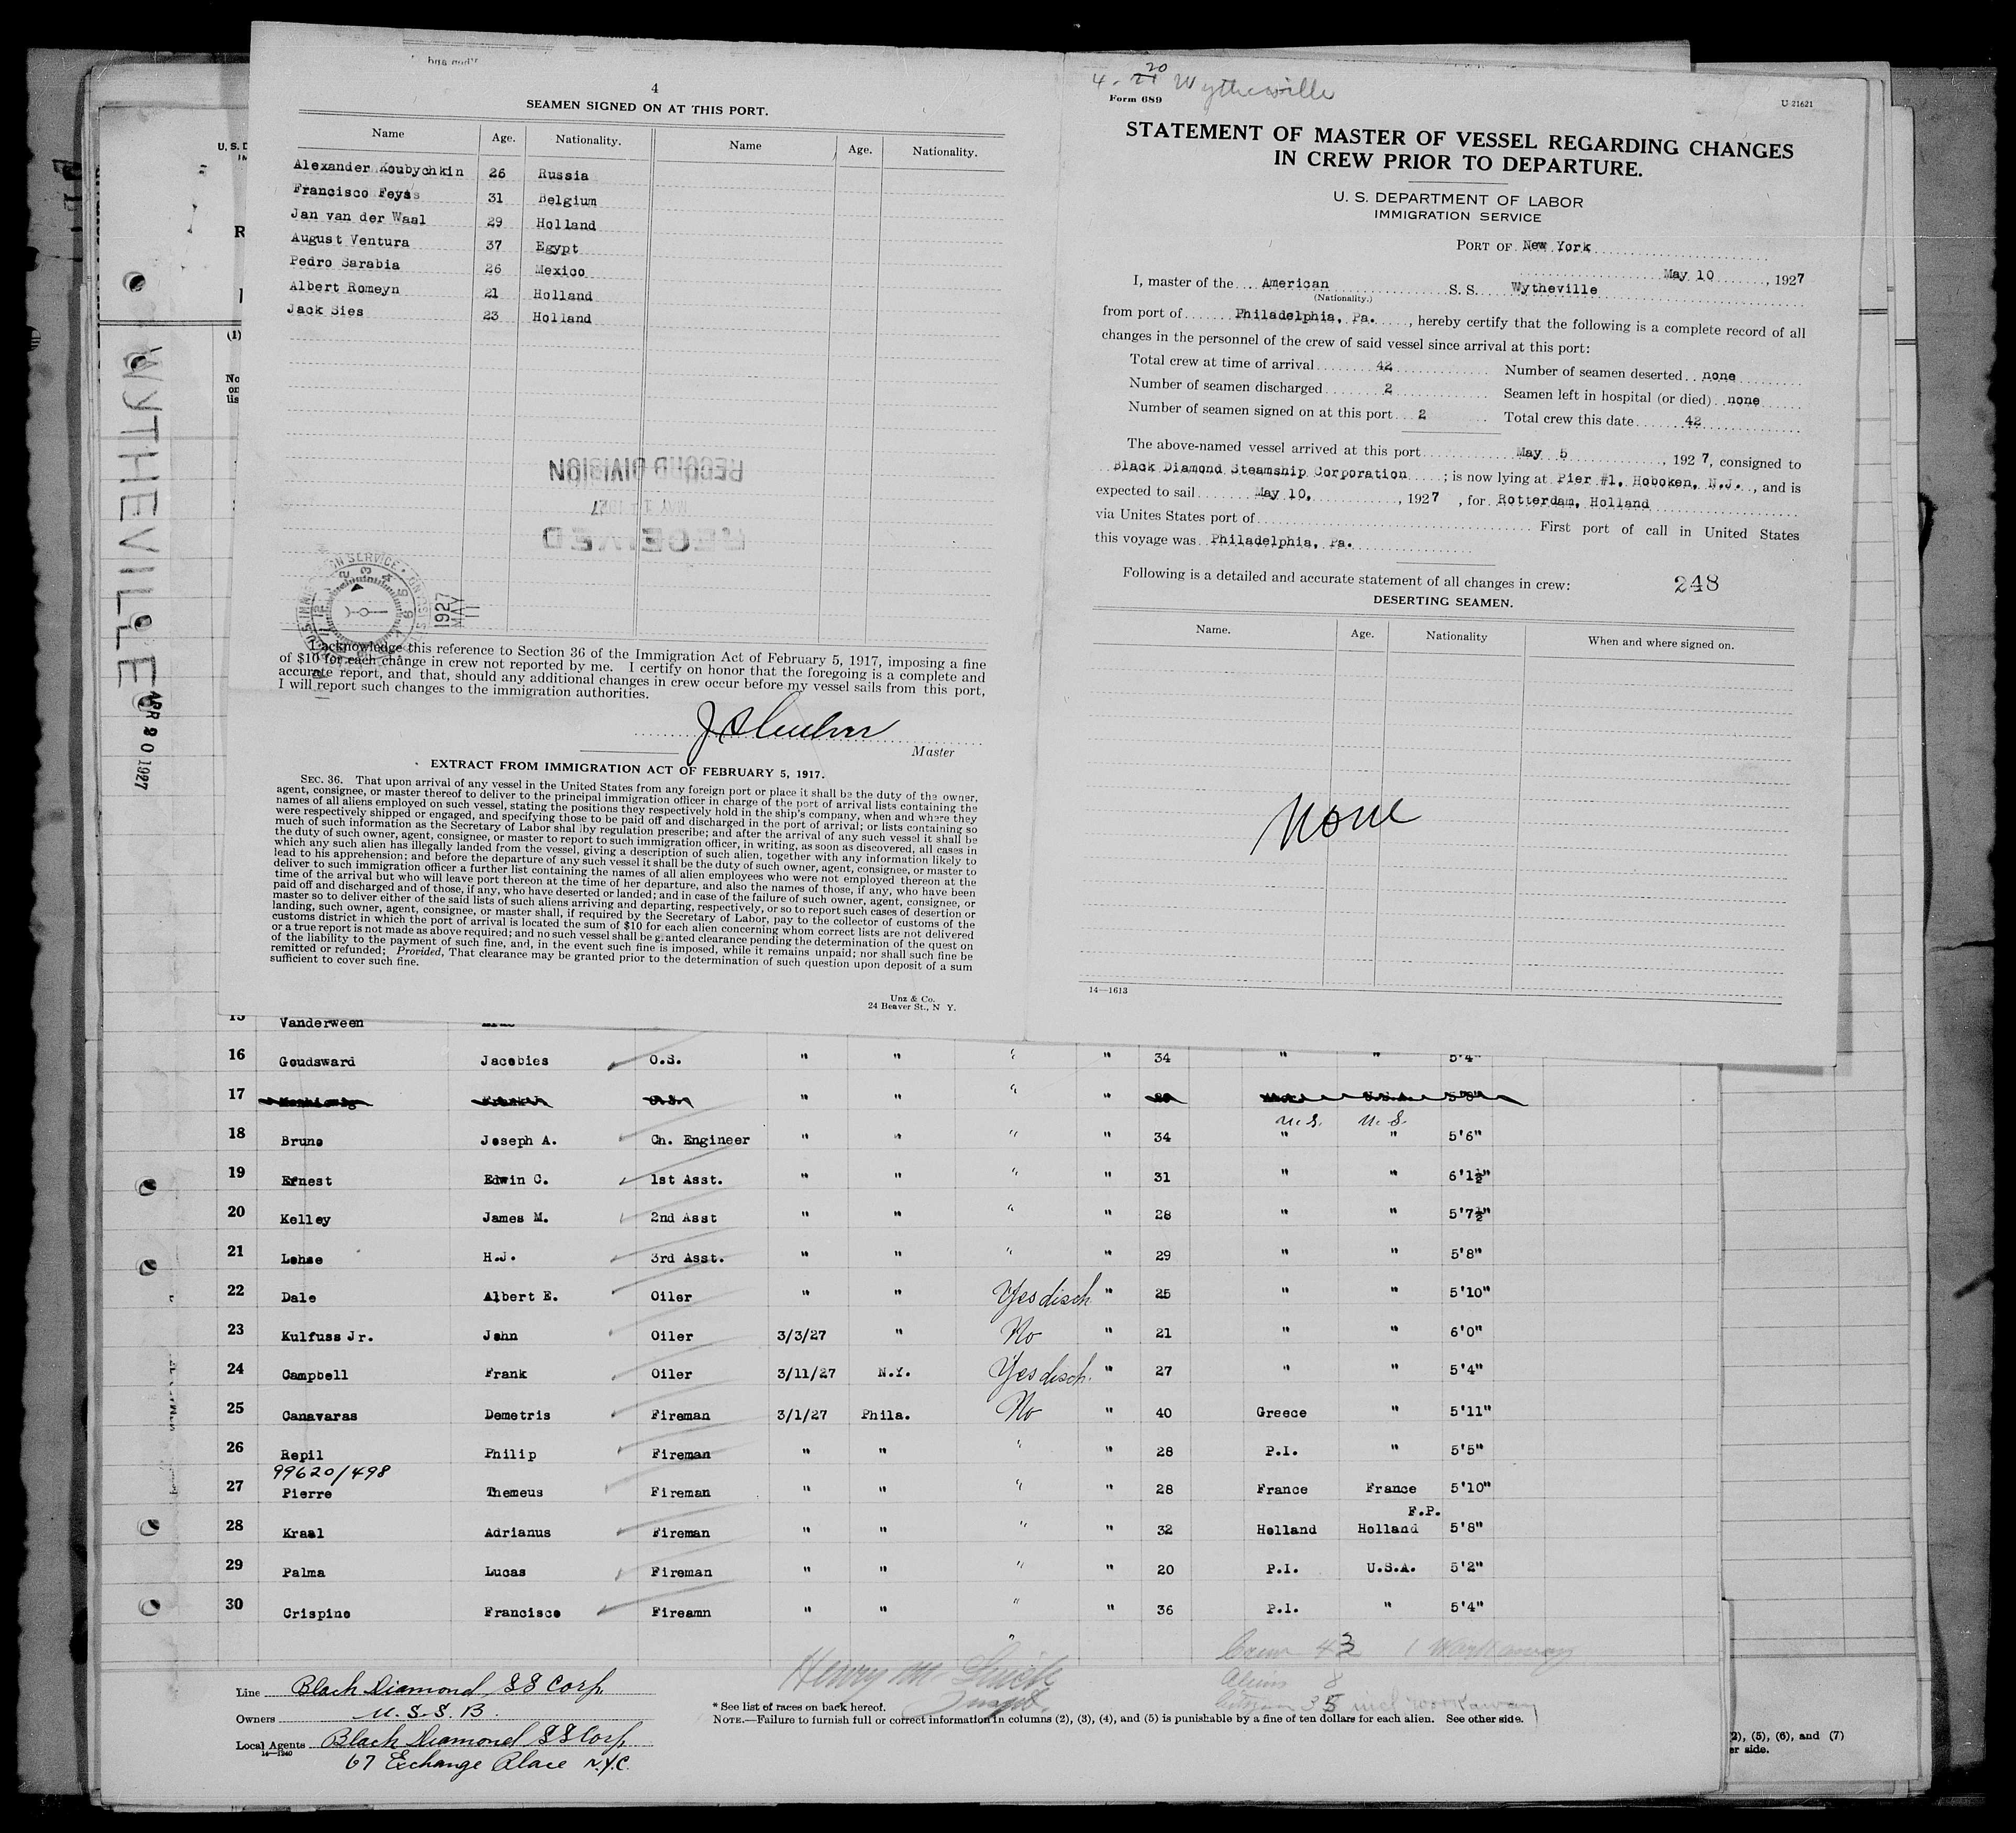 4
SEAMEN SIGNED ON AT THIS PORT.
Name Age. Nationality. Name Age. Nationality.
Alexander Koubychkin 26 Russia
Francisco Feyss 31 Belgium
Jan van der Waal 29 Holland
August Ventura 37 Egypt
Pedro Sarabia 26 Mexico
Albert Romeyn 21 Holland
Jack Sies 23 Holland
RECORD DIVISION
MAY 11 1927
RECEIVED
1927
MAY
11
I acknowledge this reference to Section 36 of the Immigration Act of February 5, 1917, imposing a fine
of $10 for each change in crew not reported by me. I certify on honor that the foregoing is a complete and
accurate report, and that, should any additional changes in crew occur before my vessel sails from this port,
I will report such changes to the immigration authorities.
Master
EXTRACT FROM IMMIGRATION ACT OF FEBRUARY 5, 1917.
SEC. 36. That upon arrival of any vessel in the United States from any foreign port or place it shall be the duty of the owner,
agent, consignee, or master thereof to deliver to the principal immigration officer in charge of the port of arrival lists containing the
names of all aliens employed on such vessel, stating the positions they respectively hold in the ship's company, when and where they
were respectively shipped or engaged, and specifying those to be paid off and discharged in the port of arrival; or lists containing so
much of such information as the Secretary of Labor shall by regulation prescribe; and after the arrival of any such vessel it shall be
the duty of such owner, agent, consignee, or master to report to such immigration officer, in writing, as soon as discovered, all cases in
which any such alien has illegally landed from the vessel, giving a description of such alien, together with any information likely to
lead to his apprehension; and before the departure of any such vessel it shall be the duty of such owner, agent, consignee, or master to
deliver to such immigration officer a further list containing the names of all alien employees who were not employed thereon at the
time of the arrival but who will leave port thereon at the time of her departure, and also the names of those, if any, who have been
paid off and discharged and of those, if any, who have deserted or landed; and in case of the failure of such owner, agent, consignee, or
master so to deliver either of the said lists of such aliens arriving and departing, respectively, or so to report such cases of desertion or
landing, such owner, agent, consignee, or master shall, if required by the Secretary of Labor, pay to the collector of customs of the
customs district in which the port of arrival is located the sum of $10 for each alien concerning whom correct lists are not delivered
or a true report is not made as above required; and no such vessel shall be granted clearance pending the determination of the quest on
of the liability to the payment of such fine, and, in the event such fine is imposed, while it remains unpaid; nor shall such fine be
remitted or refunded; Provided, That clearance may be granted prior to the determination of such question upon deposit of a sum
sufficient to cover such fine.
Unz & Co.
24 Beaver St., N Y.
4-20 Wytheville
Form 689 U 21621
STATEMENT OF MASTER OF VESSEL REGARDING CHANGES
IN CREW PRIOR TO DEPARTURE.
U. S. DEPARTMENT OF LABOR
IMMIGRATION SERVICE
PORT OF New York
May 10, 1927
I, master of the American S. S. Wytheville
(Nationality.)
from port of Philadelphia, Pa., hereby certify that the following is a complete record of all
changes in the personnel of the crew of said vessel since arrival at this port:
Total crew at time of arrival 42 Number of seamen deserted none
Number of seamen discharged 2 Seamen left in hospital (or died) none
Number of seamen signed on at this port 2 Total crew this date 42
The above-named vessel arrived at this port May 5, 1927, consigned to
Black Diamond Steamship Corporation; is now lying at Pier #1, Hoboken, N.J., and is
expected to sail May 10, 1927, for Rotterdam, Holland
via Unites States port of First port of call in United States
this voyage was Philadelphia, Pa.
Following is a detailed and accurate statement of all changes in crew: 248
DESERTING SEAMEN.
Name. Age. Nationality When and where signed on.
None
14—1613
WYTHEVILLE
APR 20 1927
15 Vanderween
16 Goudsward Jacobies O.S. " " " " 34 " " 5'4"
17 " " " "
U.S. U.S.
18 Brune Joseph A. Ch. Engineer " " " " 34 " " 5'6"
19 Ernest Edwin C. 1st Asst. " " " " 31 " " 6'1½"
20 Kelley James M. 2nd Asst " " " " 28 " " 5'7½"
21 Lehse H.J. 3rd Asst. " " " " 29 " " 5'8"
22 Dale Albert E. Oiler " " Yes disch " 25 " " 5'10"
23 Kulfuss Jr. John Oiler 3/3/27 " No " 21 " " 6'0"
24 Campbell Frank Oiler 3/11/27 N.Y. Yes disch. " 27 " " 5'4"
25 Canavaras Demetris Fireman 3/1/27 Phila. No " 40 Greece " 5'11"
26 Repil Philip Fireman " " " " 28 P.I. " 5'5"
99620/498
27 Pierre Themeus Fireman " " " " 28 France France 5'10"
F.P.
28 Kraal Adrianus Fireman " " " " 32 Holland Holland 5'8"
29 Palma Lucas Fireman " " " " 20 P.I. U.S.A. 5'2"
30 Crispine Francisco Fireamn " " " " 36 P.I. " 5'4"
Crew 43 1 Workaway
Aliens 8
Citizen 35 incl workaway
Line Black Diamond SS Corp
Owners U.S.S.B.
Local Agents Black Diamond SS Corp
14—1240
67 Exchange Place N.Y.C.
* See list of races on back hereof.
NOTE.—Failure to furnish full or correct information in columns (2), (3), (4), and (5) is punishable by a fine of ten dollars for each alien. See other side.
(2), (5), (6), and (7)
er side.